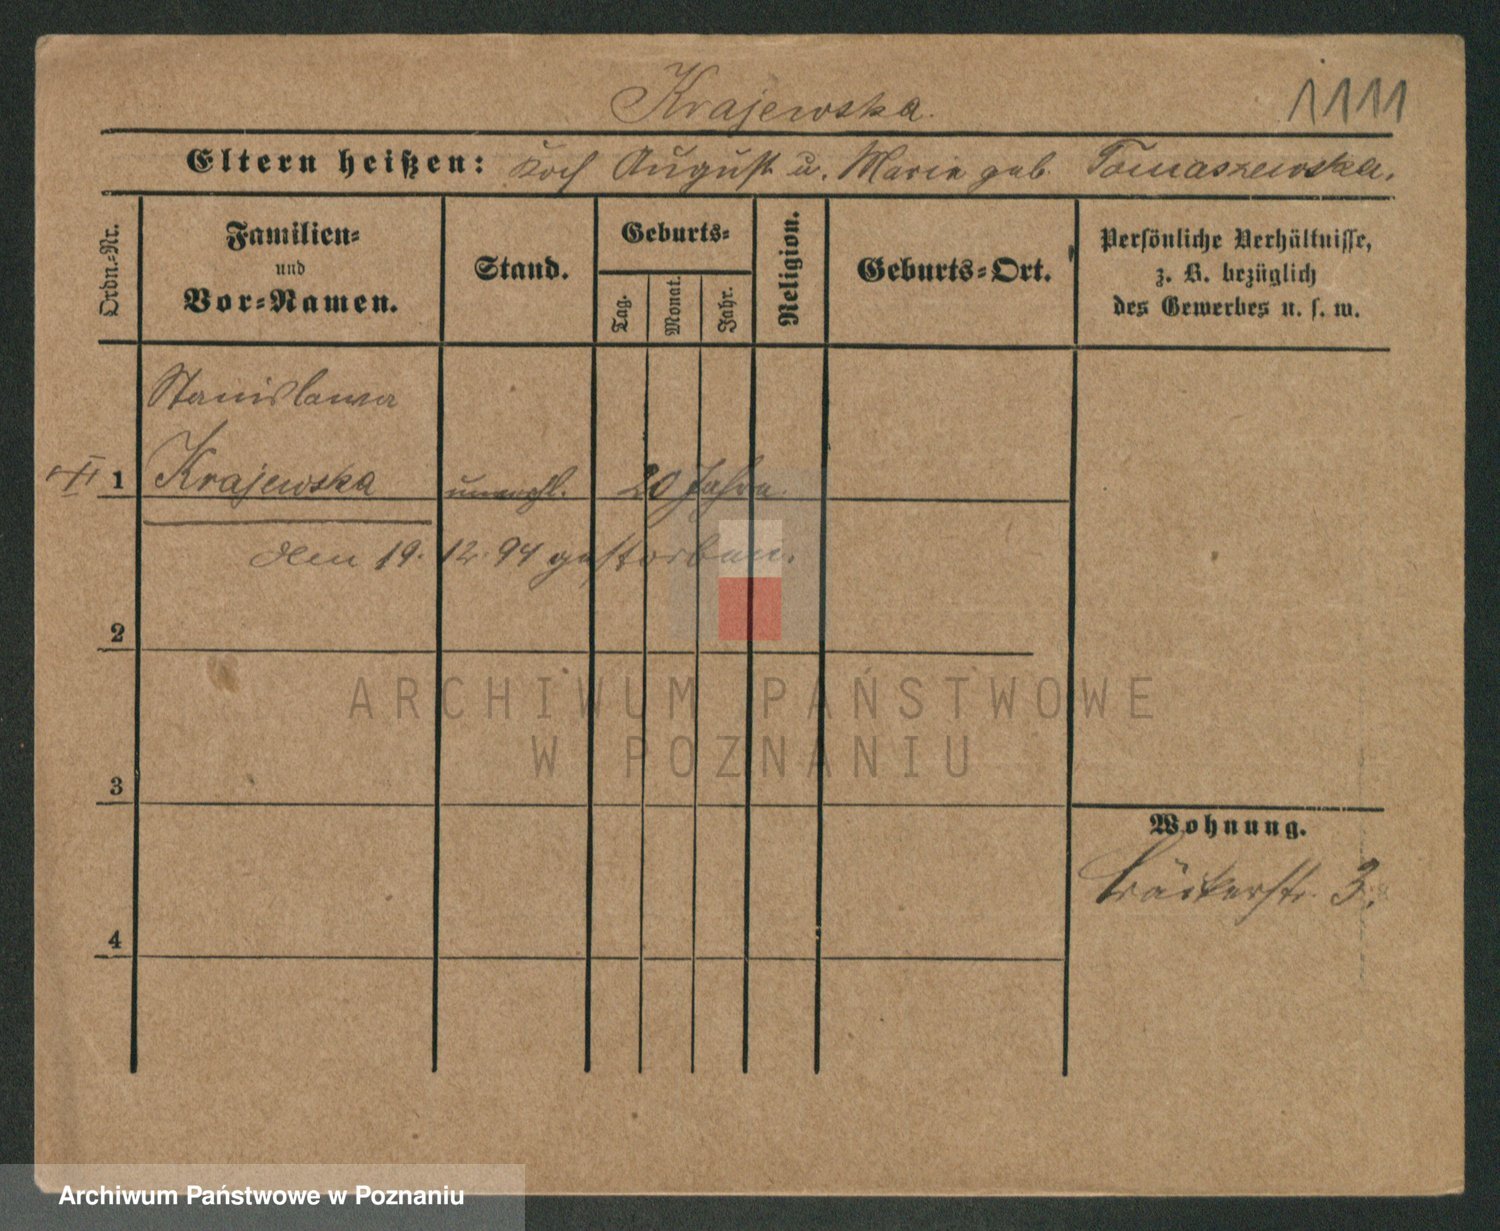 Krajewska.
1111
Eltern heißen: Koch August u. Marie geb. Tomaszewska.
Ordn.-Nr.
Familien-
und
Vor-Namen.
Stand.
Geburts-
Tag.
Monat.
Jahr.
Religion.
Geburts-Ort.
Persönliche Verhältnisse,
z. B. bezüglich
des Gewerbes u. s. w.
Stanislawa
1 Krajewska unverehl. 20 Jahre
den 19. 12. 94 gestorben.
2
ARCHIWUM PAŃSTWOWE
W POZNANIU
3
Wohnung.
Bäckerstr. 3.
4
Archiwum Państwowe w Poznaniu